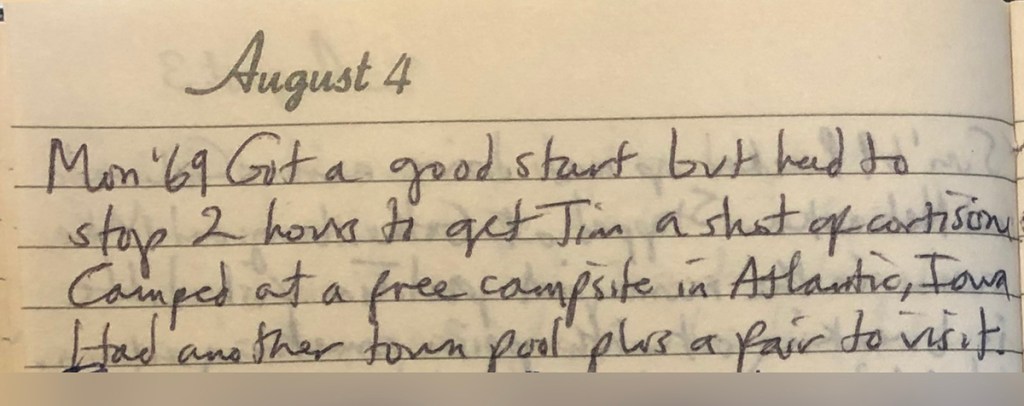 August 4
Mon '69 Got a good start but had to
stop 2 hours to get Jim a shot of cortison
Camped at a free campsite in Atlantic, Iowa
Had another town pool plus a fair to visit.